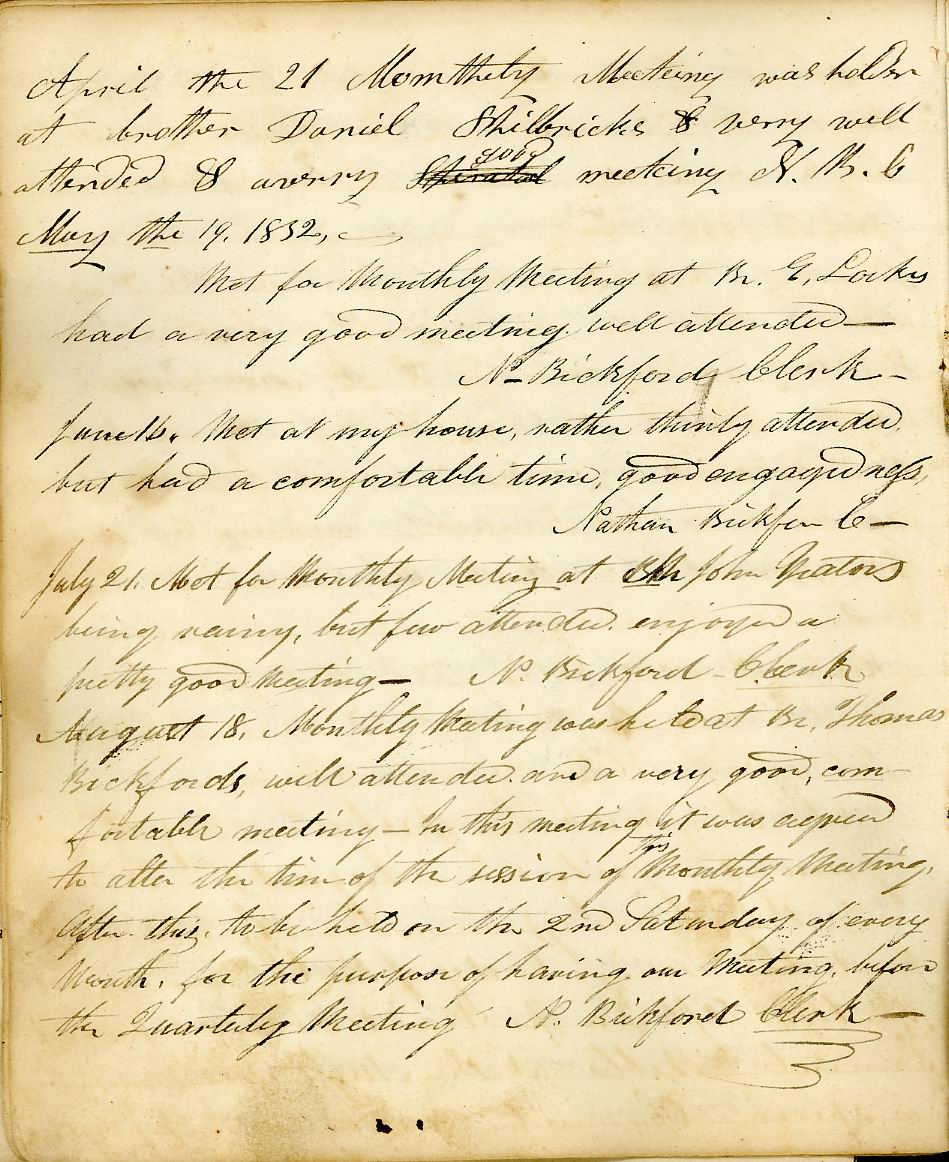 April the 21 Momthely Meeteing was holden
at brother Daniel Philbricks & verry well
attended & averry good meeteing N. B. C
May the 19. 1832,
Met for Monthly Meeting at Br. E. Lockes
had a very good meeting. well attended —
N. Bickford, Clerk —
June 16. Met at my house, rather thinly attended.
but had a comfortable time, good engagedness,
Nathan Bickford C —
July 21. Met for Monthly Meeting at Br John
being rainy, but few attended. enjoyed a
pretty good Meeting — N. Bickford - Clerk
August 18. Monthly Meeting was held at Br. Thomas
Bickfords, well attended. and a very good, com-
fortable meeting — In this meeting it was agreed
to alter the time of the session of this Monthly Meeting.
After this, to be held on the 2nd Saturday of every
Month. for the purpose of having our Meeting, before
the Quarterly Meeting N. Bickford Clerk —